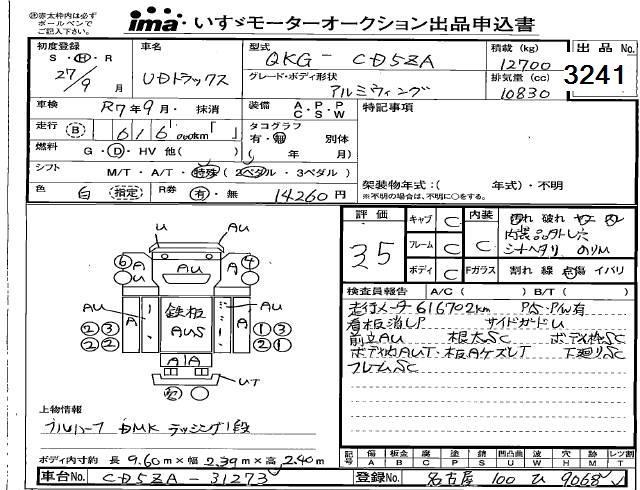 ㊟赤太枠内は必ず
ボールペンで
ご記入下さい。
ima いすゞモーターオークション出品申込書
初度登録
S ・ H ・ R
27/9 月
車名
UDトラックス
型式
QKG - CD5ZA
グレード・ボディ形状
アルミウィング
積載 (kg)
12700
排気量 (cc)
10830
出品 No.
3241
車検 R7年9月・抹消
走行 B 616,000km
燃料 G ・ D ・ HV 他( )
シフト M/T ・ A/T ・ 特殊 ( 2ペダル ・ 3ペダル )
色 白 (指定) R券 有 ・ 無 14260 円
装備 A・P・P
C・S・W
タコグラフ
有・無 別体
( 年 月)
特記事項
架装物年式:( 年式)・不明
※不明の場合は、不明に○をする。
評価
35
キャブ C
フレーム C
ボディ C
内装 C
切れ 破れ
内装品外し穴
シートヘタリ のりM
Fガラス 割れ 線 点傷 イバリ
検査員報告 A/C ( ) B/T ( )
走行メーター616702km P/S・P/W有
看板消しP サイドガードU
前立AU 根太SC ボディ枠SC
ボディ内AUT・板AケズレT 下廻りSC
フレームSC
U AU
6 A 4
AU
AU AU
A 鉄板 AUS A
2 3 1 3
2 2 1 2
A A
UT
上物情報
ブルハーフ DMK ラッシング1段
ボディ内寸約 長 9.60m × 幅 2.39m × 高 2.40m
記号 傷A 板金B 腐C 塗P 錆S 凹凸曲U 波W 穴H 跡M レツT
車台No. CD5ZA - 31273
登録No. 名古屋 100 ひ 9068